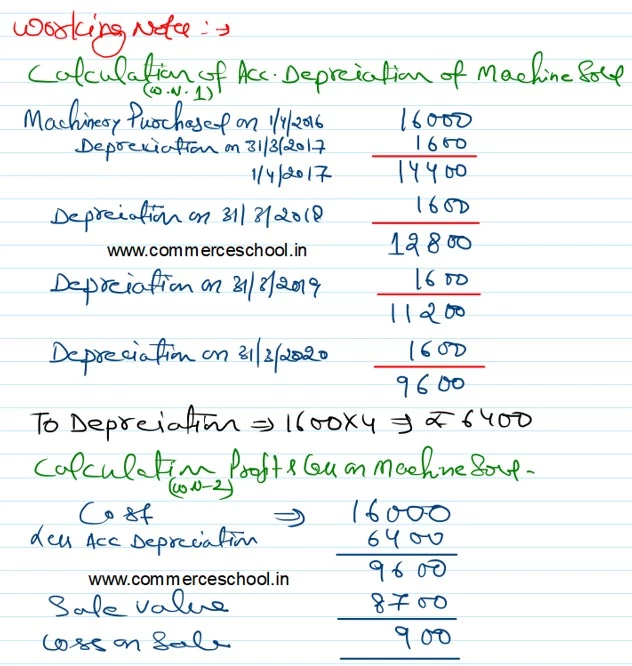 Working Note :→
Calculation of Acc. Depreiation of Machine Sold
(W.N.1)
Machinery Purchased on 1/4/2016 16000
Depreciation on 31/3/2017 1600
1/4/2017 14400
Depreiation on 31/3/2018 1600
www.commerceschool.in 12800
Depreiation on 31/3/2019 1600
11200
Depreciation on 31/3/2020 1600
9600
To Depreiation ⇒ 1600X4 ⇒ ₹ 6400
Calculation Profit & Loss on Machine Sold -
(W.N-2)
Cost ⇒ 16000
Less Acc Depreciation 6400
9600
www.commerceschool.in
Sale value 8700
Loss on Sale 900